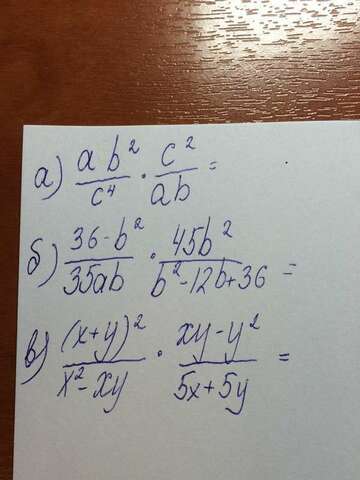 а) ab²/c⁴ · c²/ab =
б) 36-b²/35ab · 45b²/b²-12b+36 =
в) (x+y)²/x²-xy · xy-y²/5x+5y =